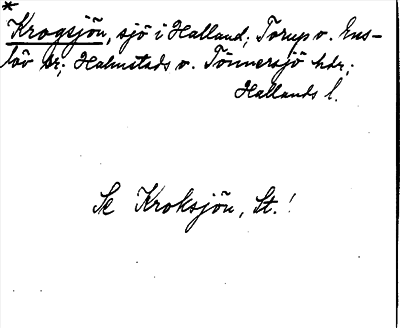 *
Krogsjön, sjö i Halland; Torup o. Ens-
löv snr; Halmstads o. Tönnersjö hdr;
Hallands l.
Se Kroksjön, St.!